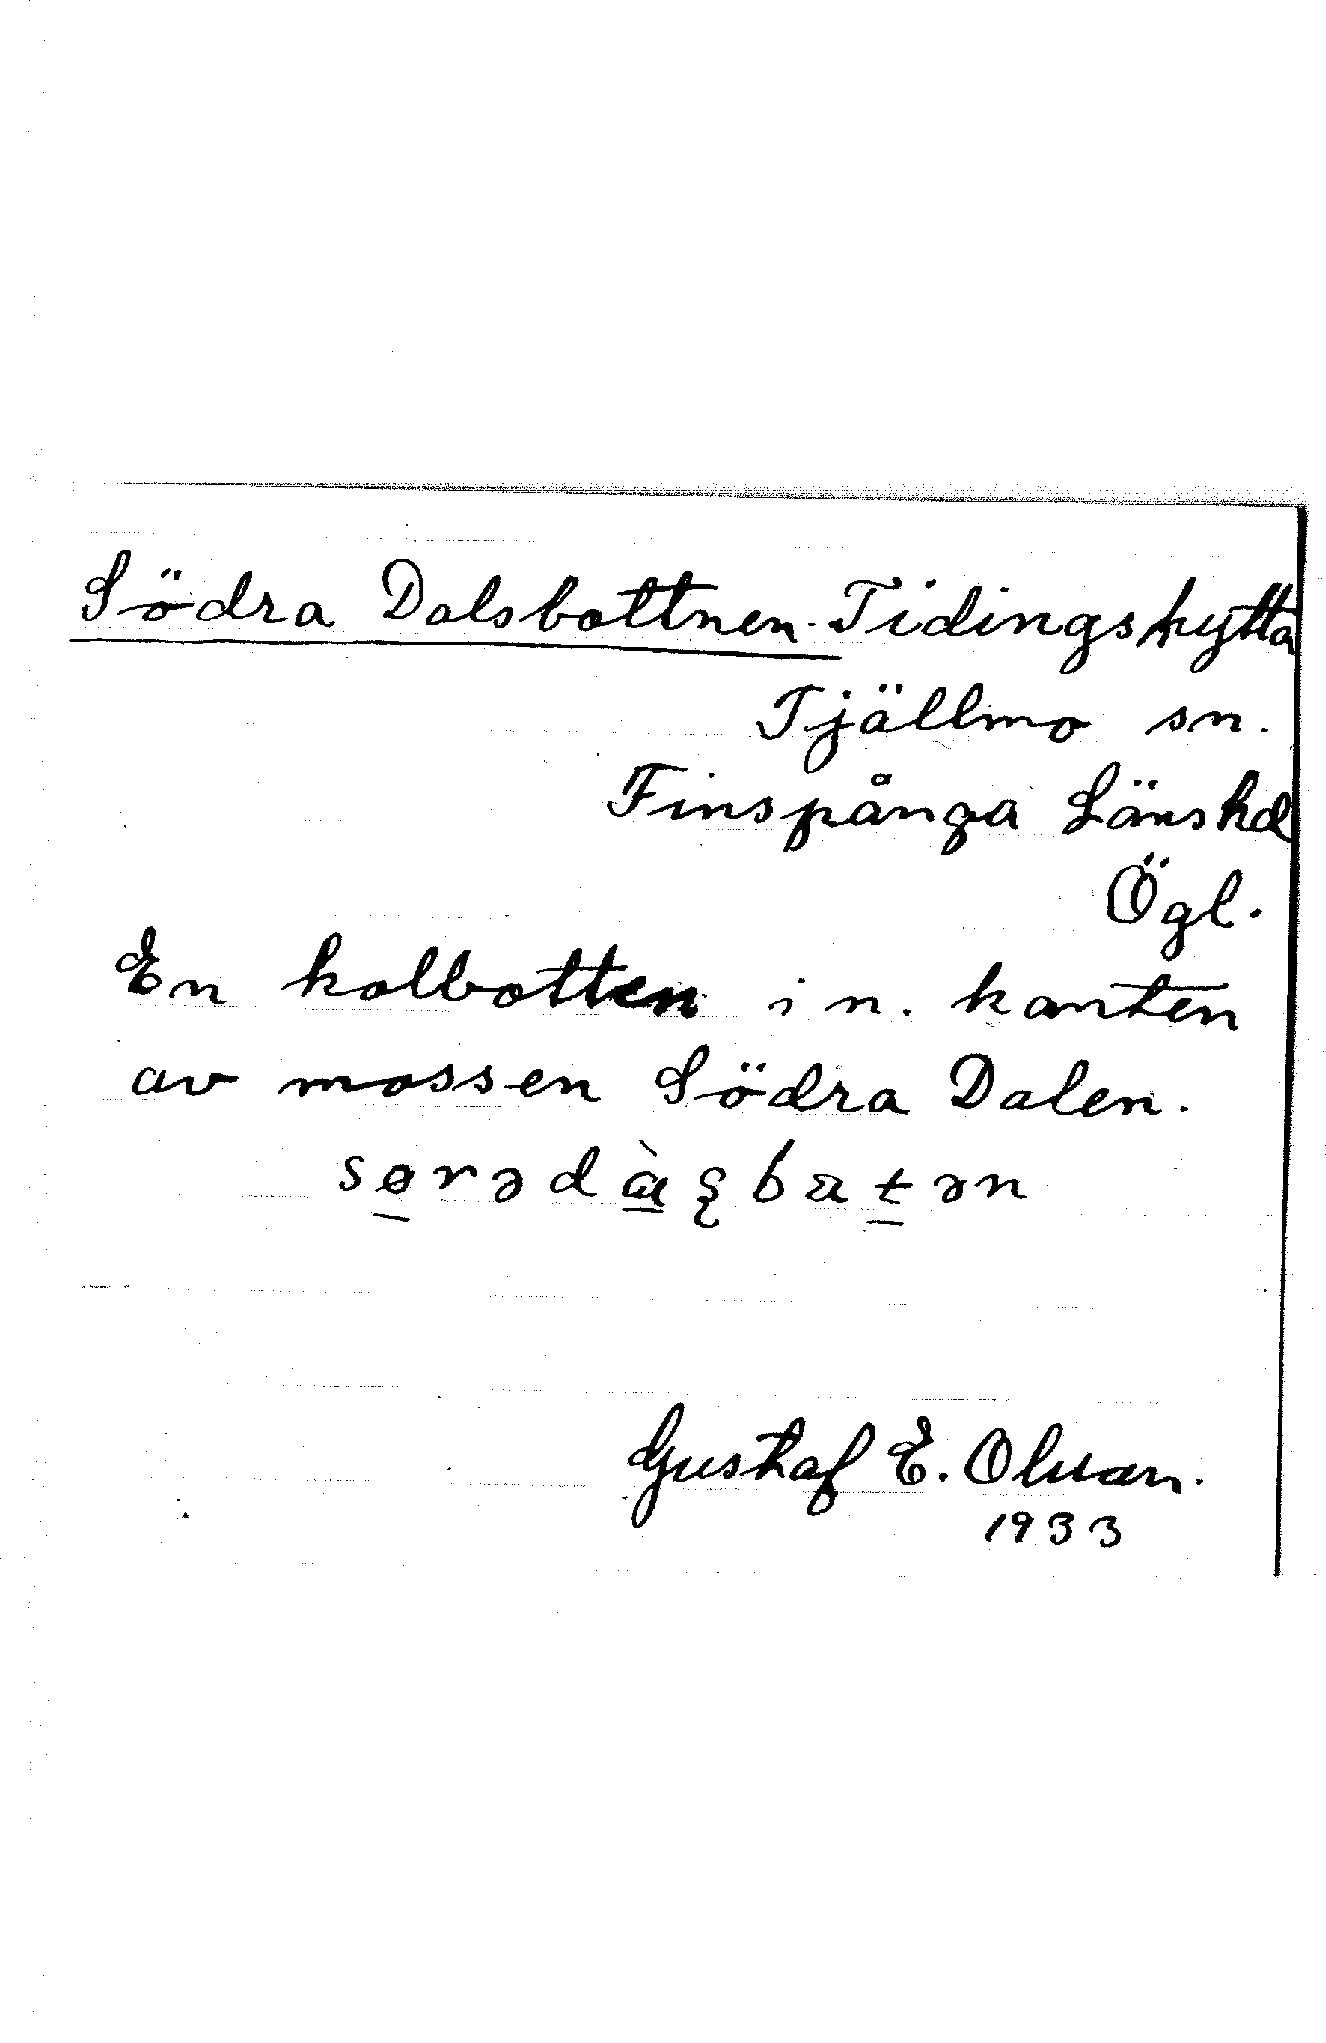 Södra Dalsbottnen. Tidingshytta
Tjällmo sn.
Finspånga Länshd
Ögl.
En kolbotten i n. kanten
av mossen Södra Dalen.
Gustaf E. Olsson.
1933